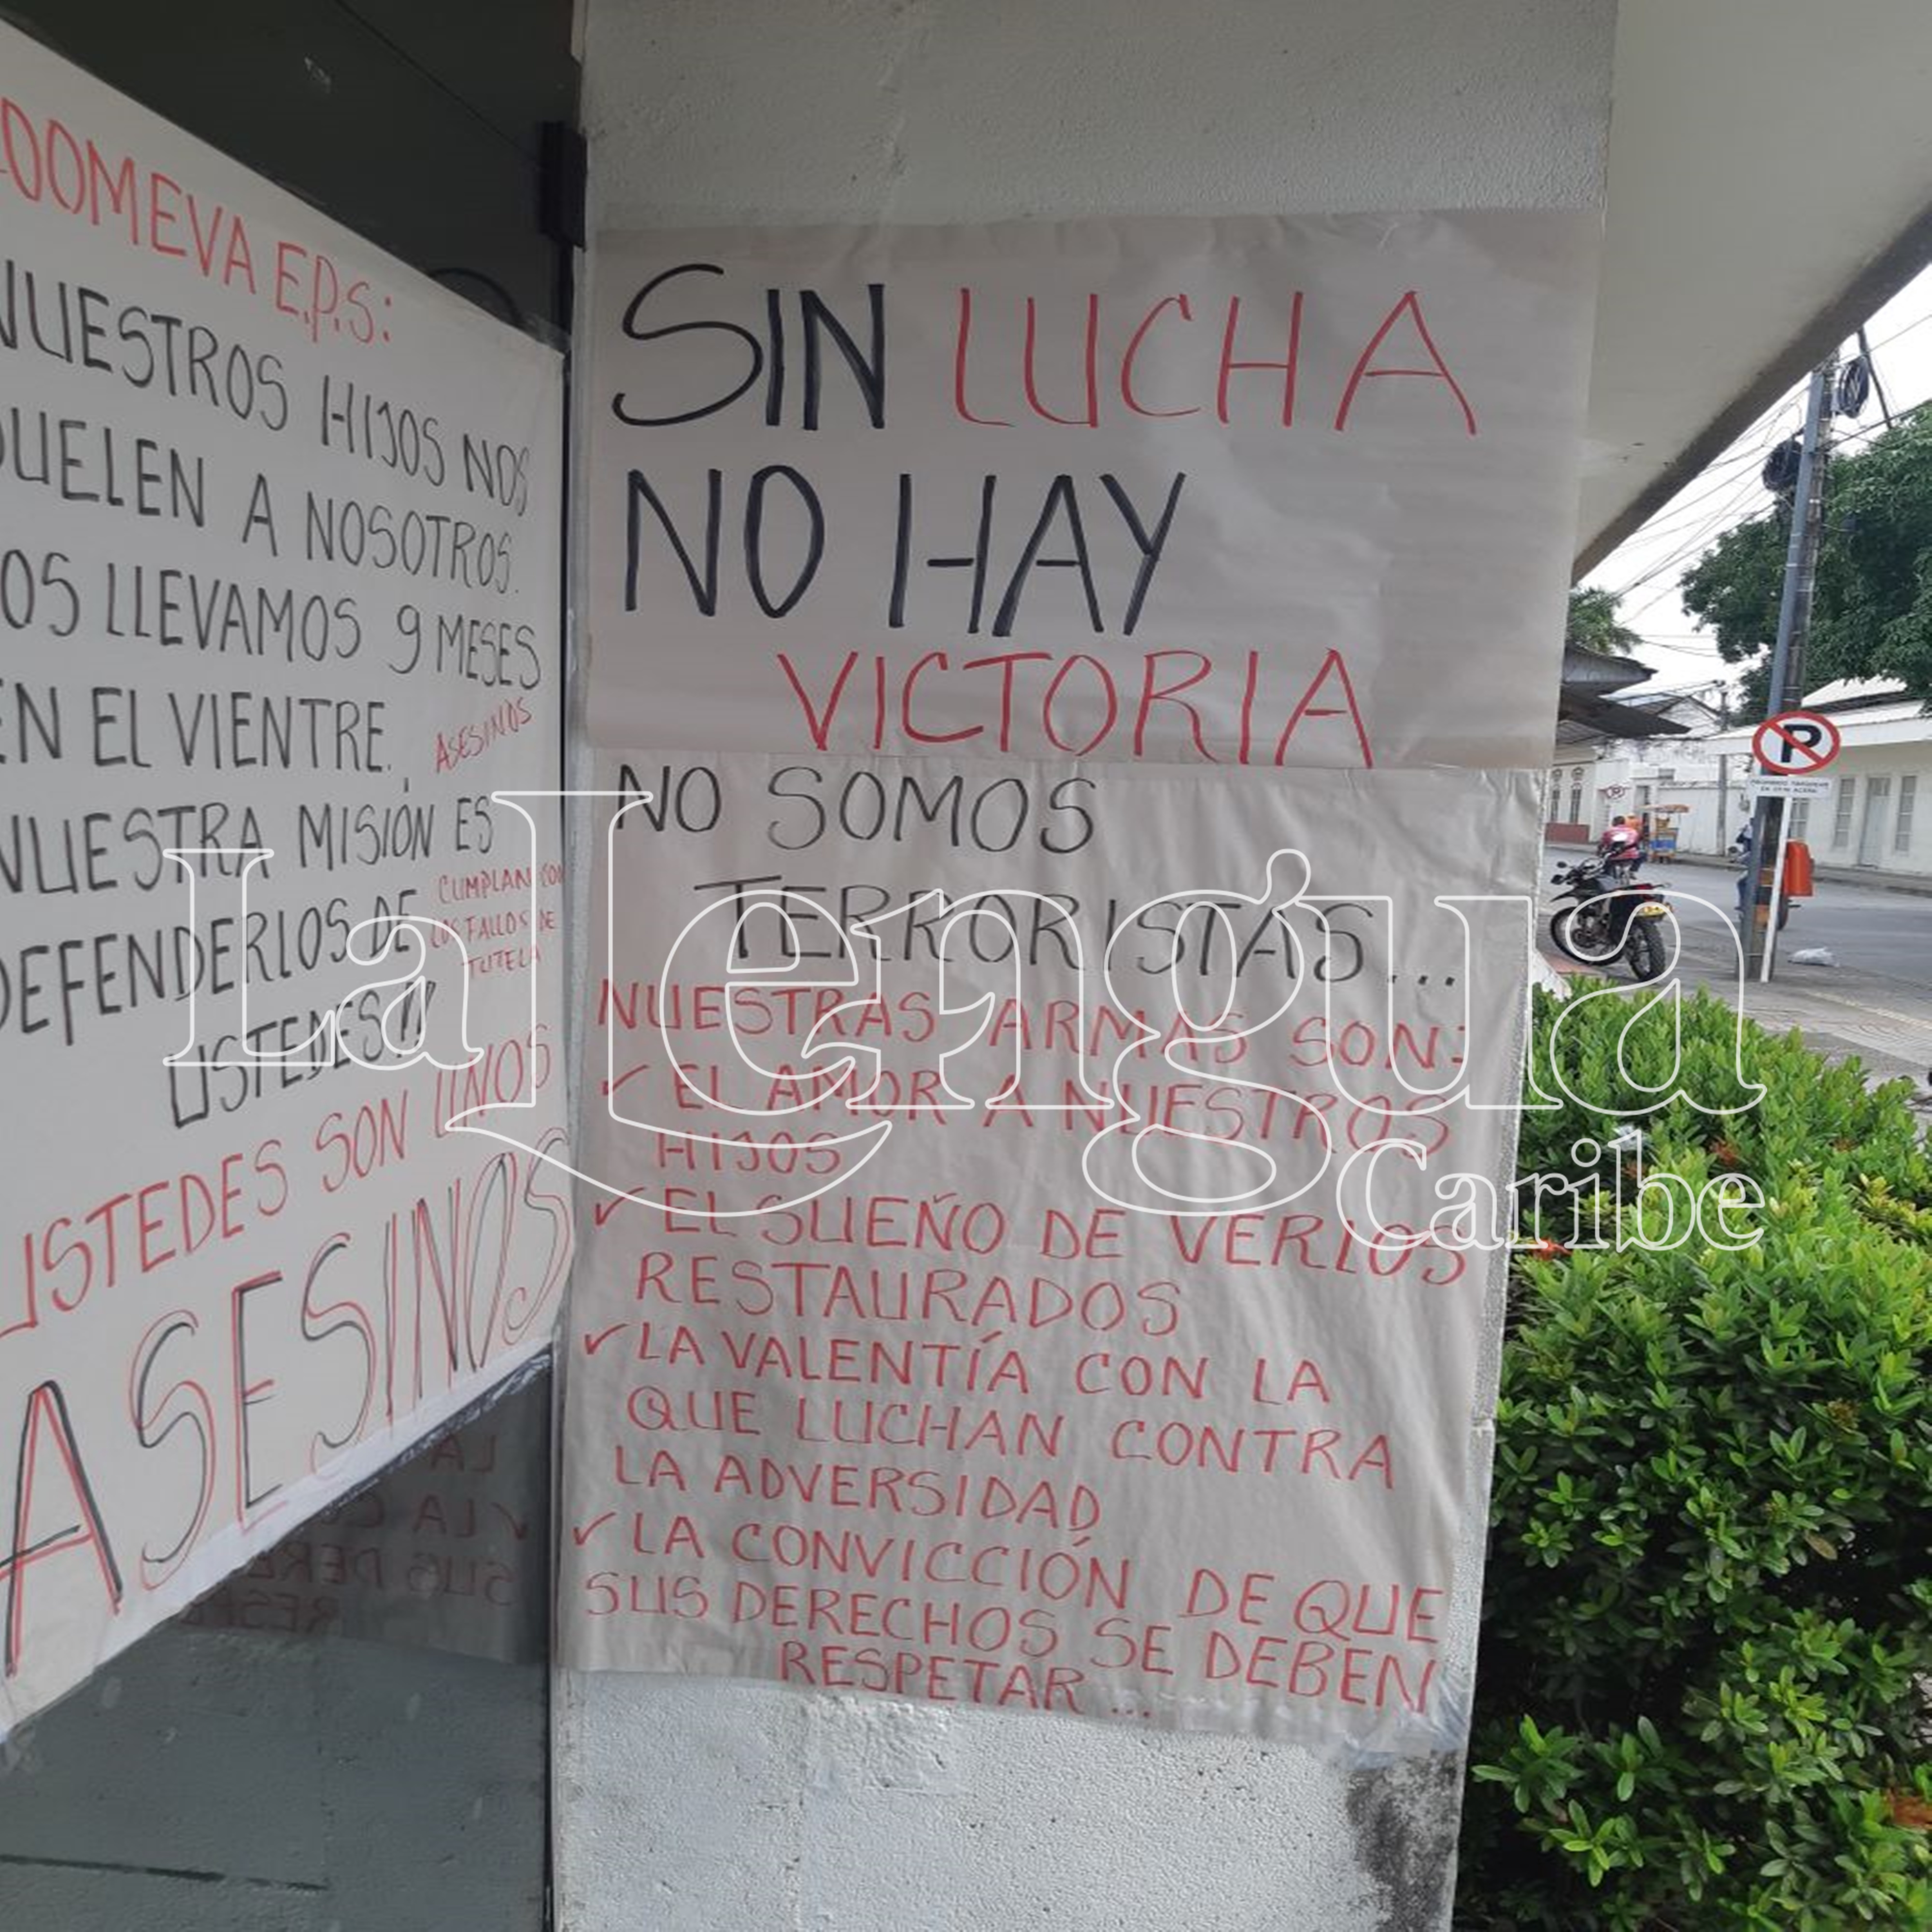 COOMEVA E.P.S:
NUESTROS HIJOS NOS
DUELEN A NOSOTROS.
LOS LLEVAMOS 9 MESES
EN EL VIENTRE.
ASESINOS
NUESTRA MISIÓN ES
DEFENDERLOS DE
USTEDES!!
CUMPLAN CON
LOS FALLOS DE
TUTELA
USTEDES SON UNOS
ASESINOS
SIN LUCHA
NO HAY
VICTORIA
NO SOMOS
TERRORISTAS...
NUESTRAS ARMAS SON:
✓ EL AMOR A NUESTROS
HIJOS
✓ EL SUEÑO DE VERLOS
RESTAURADOS
✓ LA VALENTÍA CON LA
QUE LUCHAN CONTRA
LA ADVERSIDAD
✓ LA CONVICCIÓN DE QUE
SUS DERECHOS SE DEBEN
RESPETAR...
P
La Lengua
Caribe